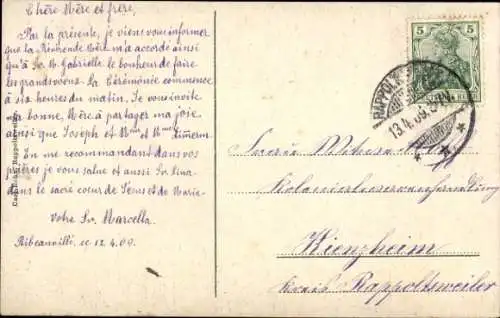 Chère Mère et frère,
Par la présente, je viens vous informer
que la Révérende Mère m'a accordé ainsi
qu'à Sr. M. Gabrielle le bonheur de faire
les grands voeux. La Cérémonie commence
à six heures du matin. Je vous invite
ma bonne, Mère à partager ma joie
ainsi que Joseph et Mme et Mme
En me recommandant dans vos
prières je vous salue et aussi Sr.
dans le sacré coeur de Jésus et de Marie
Votre Sr. Marcella.
Ribeauvillé ce 12.4.09.
5 5
RAPPOLTSW
13.4.09.
Witwe
Kolonialwarenhandlung
Kienzheim
Kreis Rappoltsweiler